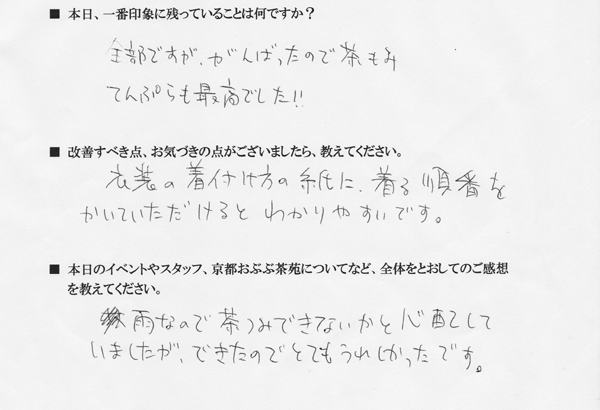 ■ 本日、一番印象に残っていることは何ですか？
全部ですが、がんばったので茶もみ
てんぷらも最高でした!!
■ 改善すべき点、お気づきの点がございましたら、教えてください。
衣装の着付け方の紙に、着る順番を
かいていただけるとわかりやすいです。
■ 本日のイベントやスタッフ、京都おぶぶ茶苑についてなど、全体をとおしてのご感想
を教えてください。
雨なので茶つみできないかと心配して
いましたが、できたのでとてもうれしかったです。